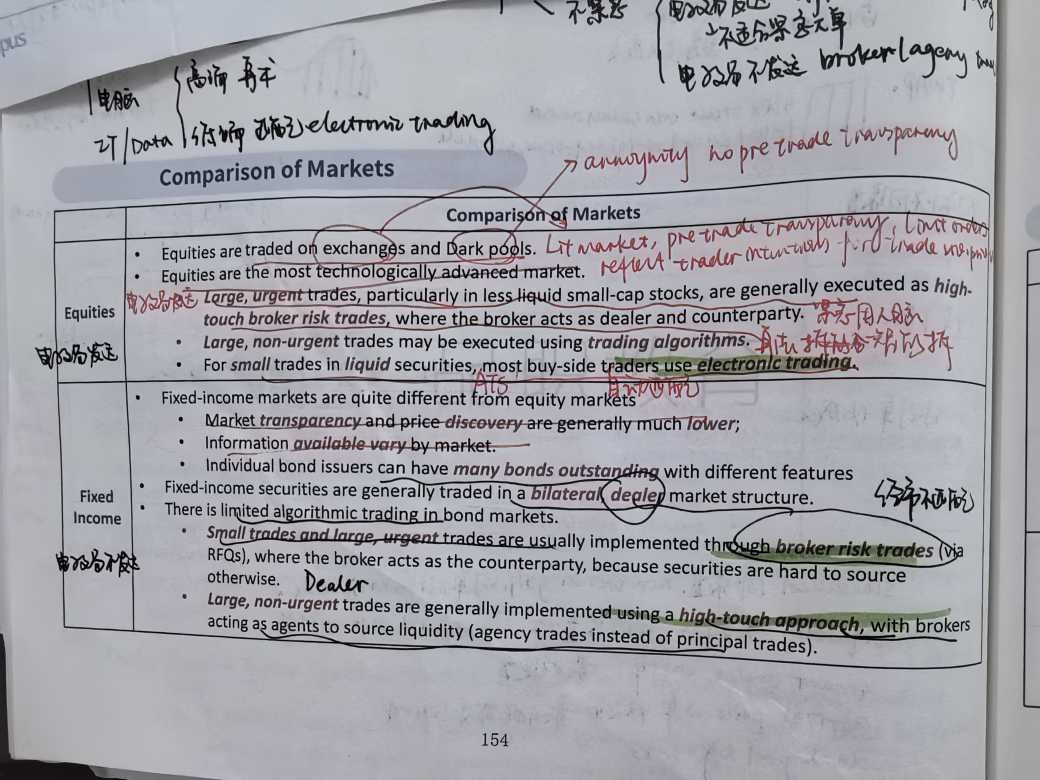 pus
电脑
高频
IT/Data
electronic trading
broker/agency
Comparison of Markets
annoynity no pre trade transparency
Comparison of Markets
• Equities are traded on exchanges and Dark pools.
Lit market, pre trade transparency, limit orders
• Equities are the most technologically advanced market.
reflect trader intentions for trade
Equities
电子交易发达
• Large, urgent trades, particularly in less liquid small-cap stocks, are generally executed as high-
touch broker risk trades, where the broker acts as dealer and counterparty.
• Large, non-urgent trades may be executed using trading algorithms.
• For small trades in liquid securities, most buy-side traders use electronic trading.
ATS
• Fixed-income markets are quite different from equity markets
• Market transparency and price discovery are generally much lower;
• Information available vary by market.
• Individual bond issuers can have many bonds outstanding with different features
Fixed
Income
• Fixed-income securities are generally traded in a bilateral, dealer market structure.
• There is limited algorithmic trading in bond markets.
• Small trades and large, urgent trades are usually implemented through broker risk trades (via
RFQs), where the broker acts as the counterparty, because securities are hard to source
otherwise. Dealer
• Large, non-urgent trades are generally implemented using a high-touch approach, with brokers
acting as agents to source liquidity (agency trades instead of principal trades).
154